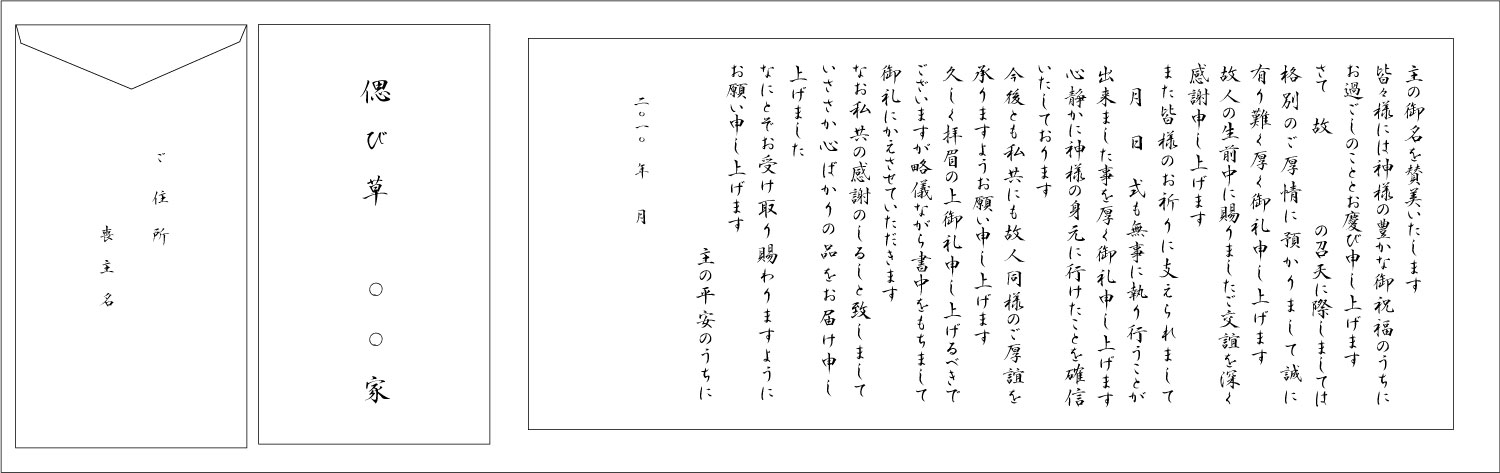 主の御名を賛美いたします
皆々様には神様の豊かな御祝福のうちに
お過ごしのこととお慶び申し上げます
さて 故 の召天に際しましては
格別のご厚情に預かりまして誠に
有り難く厚く御礼申し上げます
故人の生前中に賜りましたご交誼を深く
感謝申し上げます
また皆様のお祈りに支えられまして
月 日 式も無事に執り行うことが
出来ました事を厚く御礼申し上げます
心静かに神様の身元に行けたことを確信
いたしております
今後とも私共にも故人同様のご厚誼を
承りますようお願い申し上げます
久しく拝眉の上御礼申し上げるべきで
ございますが略儀ながら書中をもちまして
御礼にかえさせていただきます
なお私共の感謝のしるしと致しまして
いささか心ばかりの品をお届け申し
上げました
なにとぞお受け取り賜わりますように
お願い申し上げます
主の平安のうちに
二〇一〇年 月
偲び草 〇〇家
ご住所
喪主名